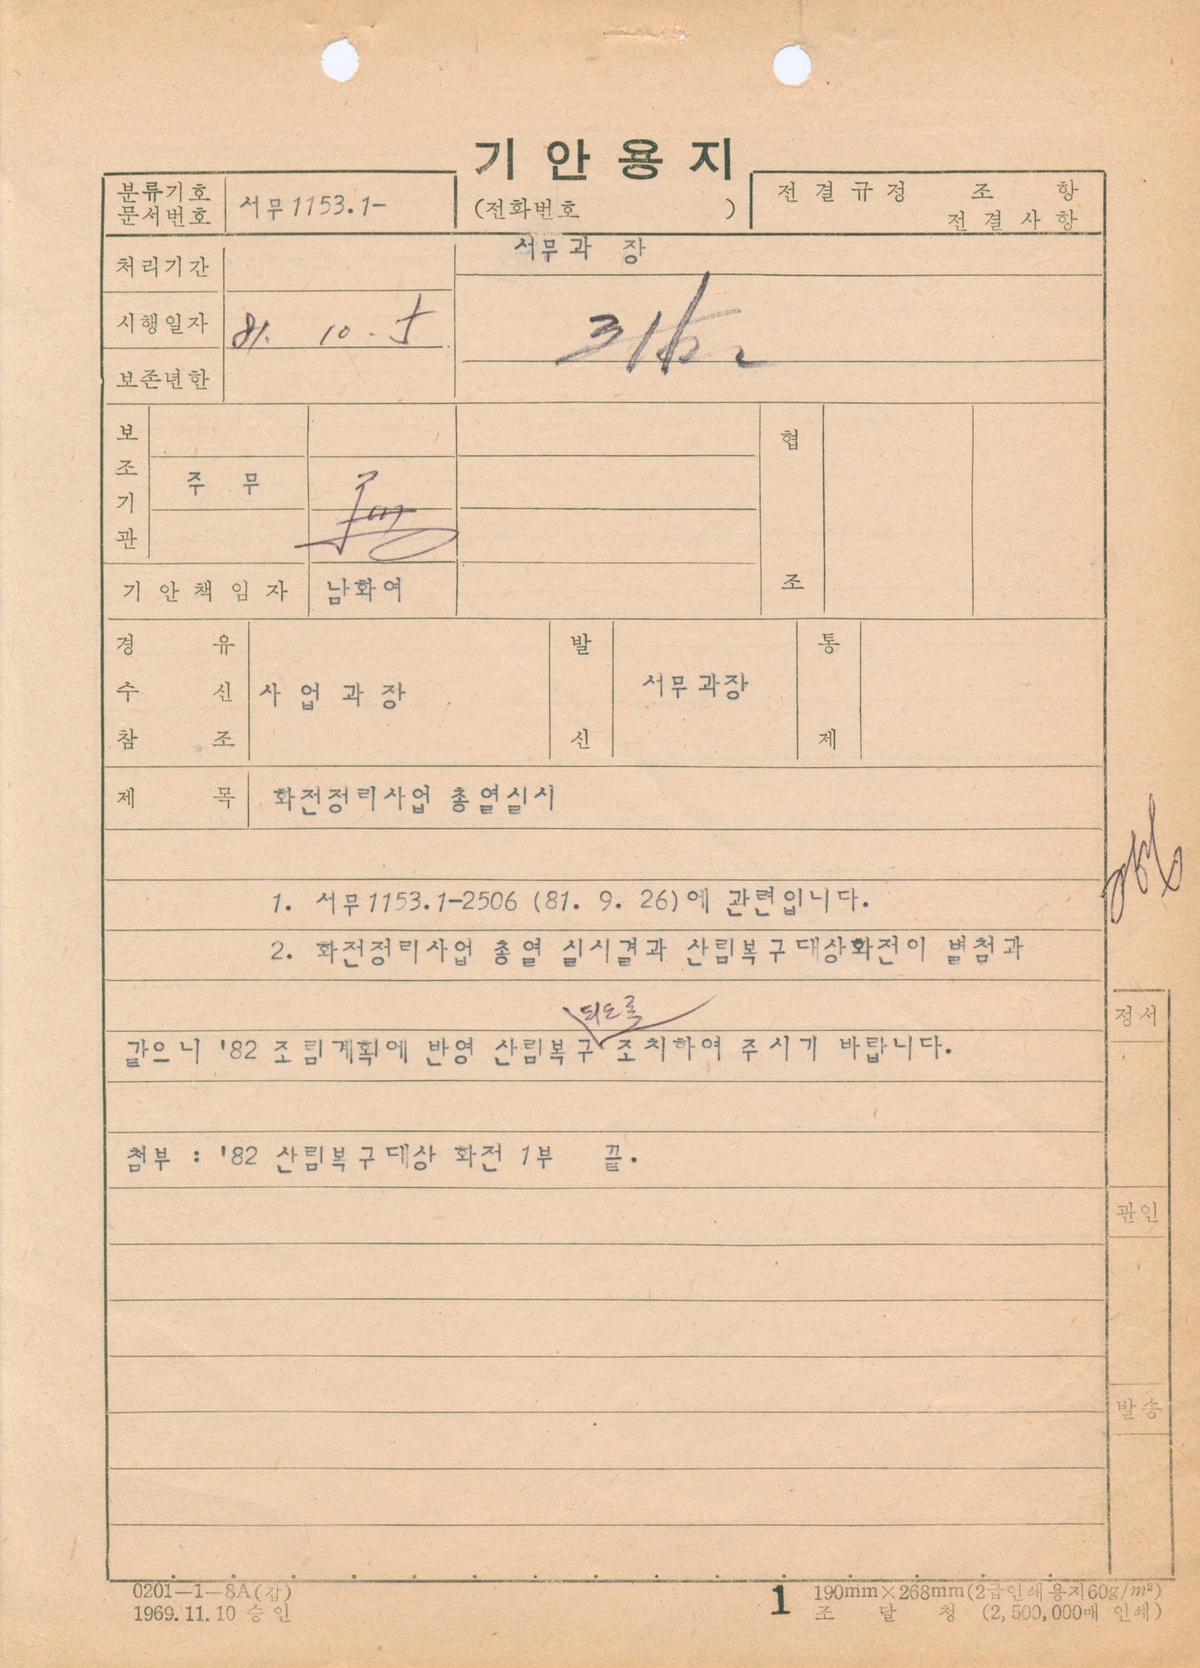 기안용지
분류기호
문서번호
서무1153.1-
(전화번호 )
전결규정 조 항
전결사항
처리기간
서무과 장
시행일자
81. 10. 5
보존년한
보조기관
주 무
협조
기안책임자
남화여
경 유
수 신
참 조
사업과장
발신
서무과장
통제
제 목
화전정리사업 총열실시
1. 서무1153.1-2506 (81. 9. 26)에 관련입니다.
2. 화전정리사업 총열 실시결과 산림복구대상화전이 별첨과
되도록
같으니 '82 조림계획에 반영 산림복구 조치하여 주시기 바랍니다.
첨부 : '82 산림복구대상 화전 1부 끝.
정서
관인
발송
0201-1-8A(갑)
1969.11.10 승인
1
190mm×268mm(2급인쇄용지60g/m²)
조 달 청 (2,500,000매 인쇄)